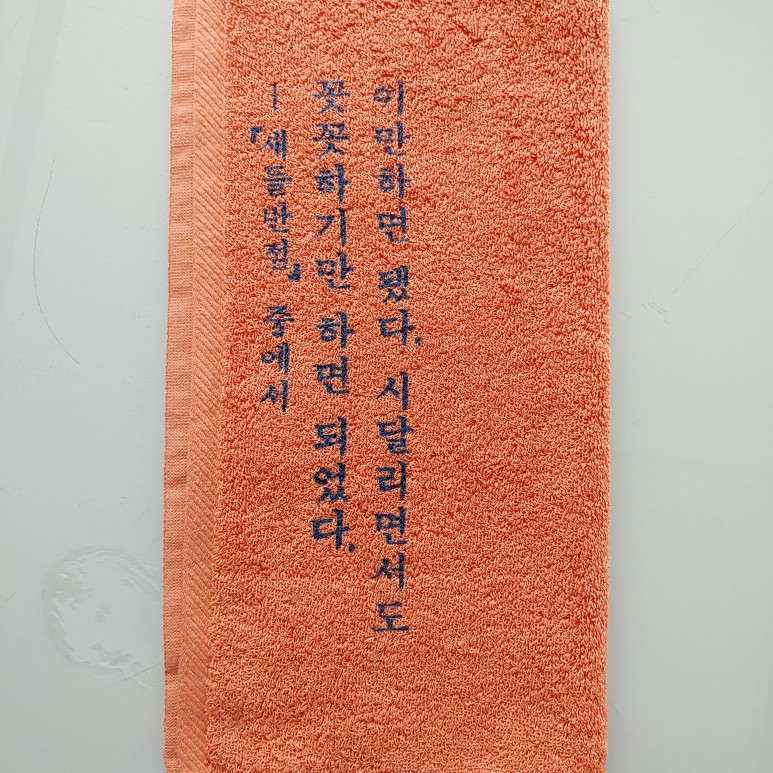 이만하면 됐다. 시달리면서도
꼿꼿하기만 하면 되었다.
─『새들반점』 중에서